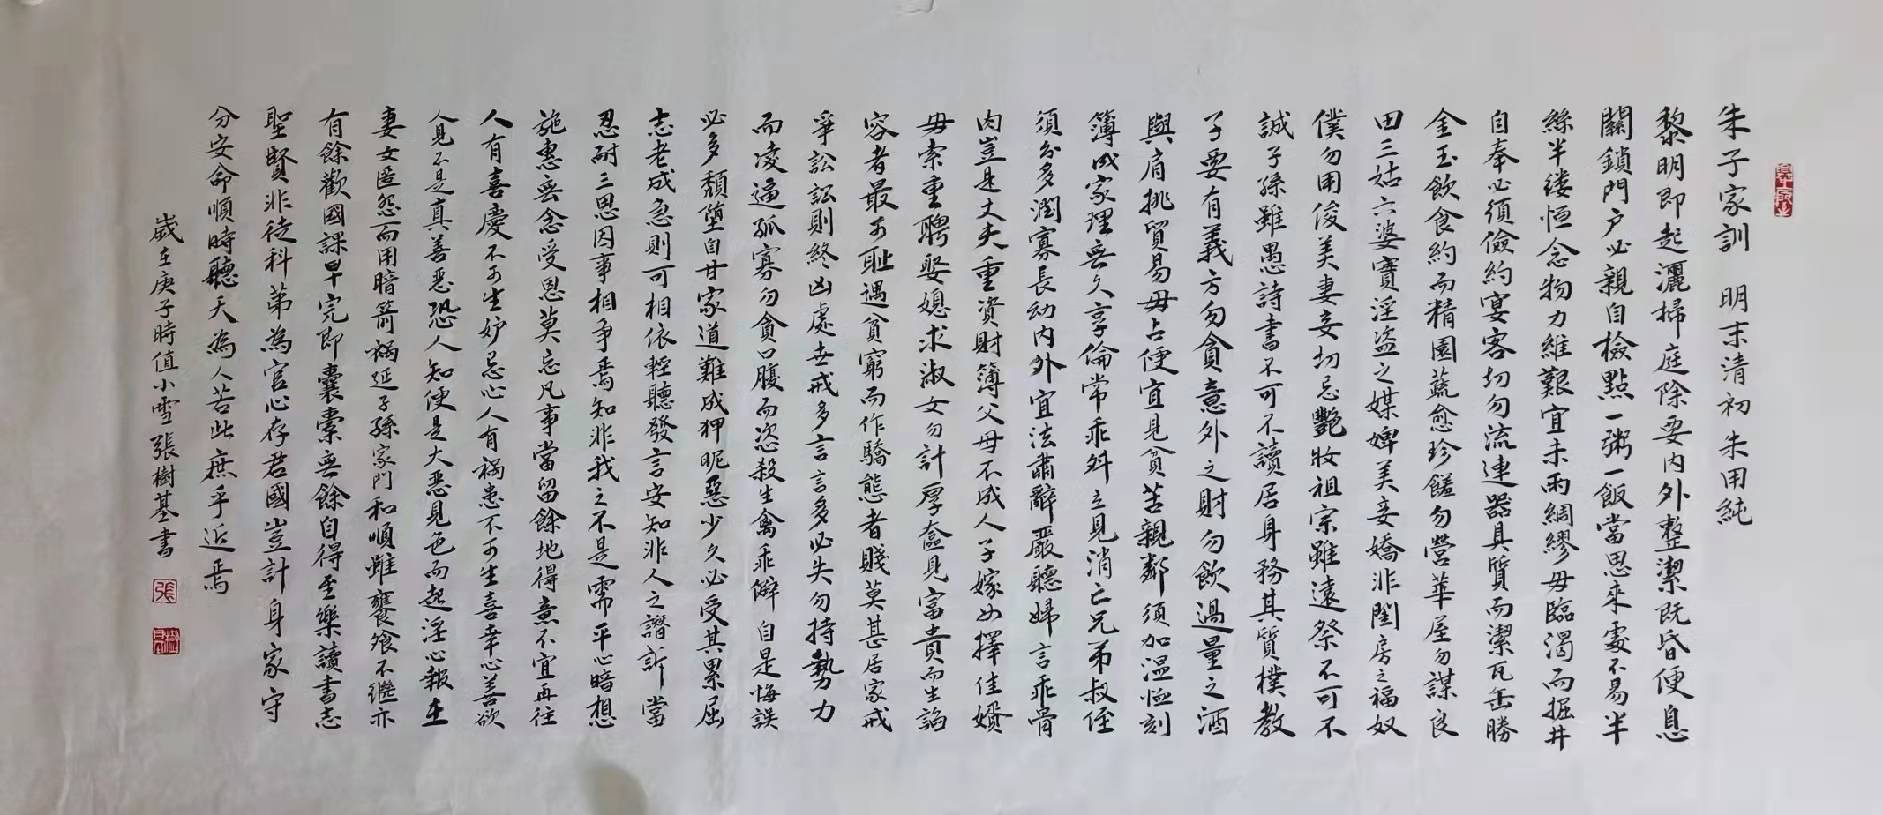 朱子家訓 明末清初朱用純
黎明即起灑掃庭除要内外整潔既昏便息
關鎖門户必親自檢點一粥一飯當思来處不易半
絲半縷恒念物力維艱宜未雨綢繆毋臨渴而掘井
自奉必須儉約宴客切勿流連器具質而潔瓦缶勝
金玉飲食約而精園蔬愈珍饈勿營華屋勿謀良
田三姑六婆實淫盗之媒婢美妾嬌非閨房之福奴
僕勿用俊美妻妾切忌艷妝祖宗雖遠祭不可不
誠子孫雖愚詩書不可不讀居身務其質樸教
子要有義方勿貪意外之財勿飲過量之酒
與肩挑貿易毋占便宜見貧苦親鄰須加温恤刻
薄成家理無久享倫常乖舛立見消亡兄弟叔侄
須分多潤寡長幼内外宜法肅辭嚴聽婦言乖骨
肉豈是丈夫重資財薄父母不成人子嫁女擇佳婿
毋索重聘娶媳求淑女勿計厚奩見富貴而生諂
容者最可耻遇貧窮而作驕態者賤莫甚居家戒
爭訟訟則終凶處世戒多言言多必失勿持勢力
而凌逼孤寡勿貪口腹而恣殺生禽乖僻自是悔誤
必多頹堕自甘家道難成狎昵惡少久必受其累屈
志老成急則可相依輕聽發言安知非人之譖訴當
忍耐三思因事相争焉知非我之不是需平心暗想
施惠無念受恩莫忘凡事當留餘地得意不宜再往
人有喜慶不可生妒忌心人有禍患不可生喜幸心善欲
人見不是真善恶恐人知便是大恶見色而起淫心報在
妻女匿怨而用暗箭禍延子孫家門和順雖饔飧不繼亦
有餘歡國課早完即囊橐無餘自得至樂讀書志
聖賢非徒科第為官心存君國豈計身家守
分安命順時聽天為人若此庶乎近焉
歲在庚子時值小雪張樹基書
張